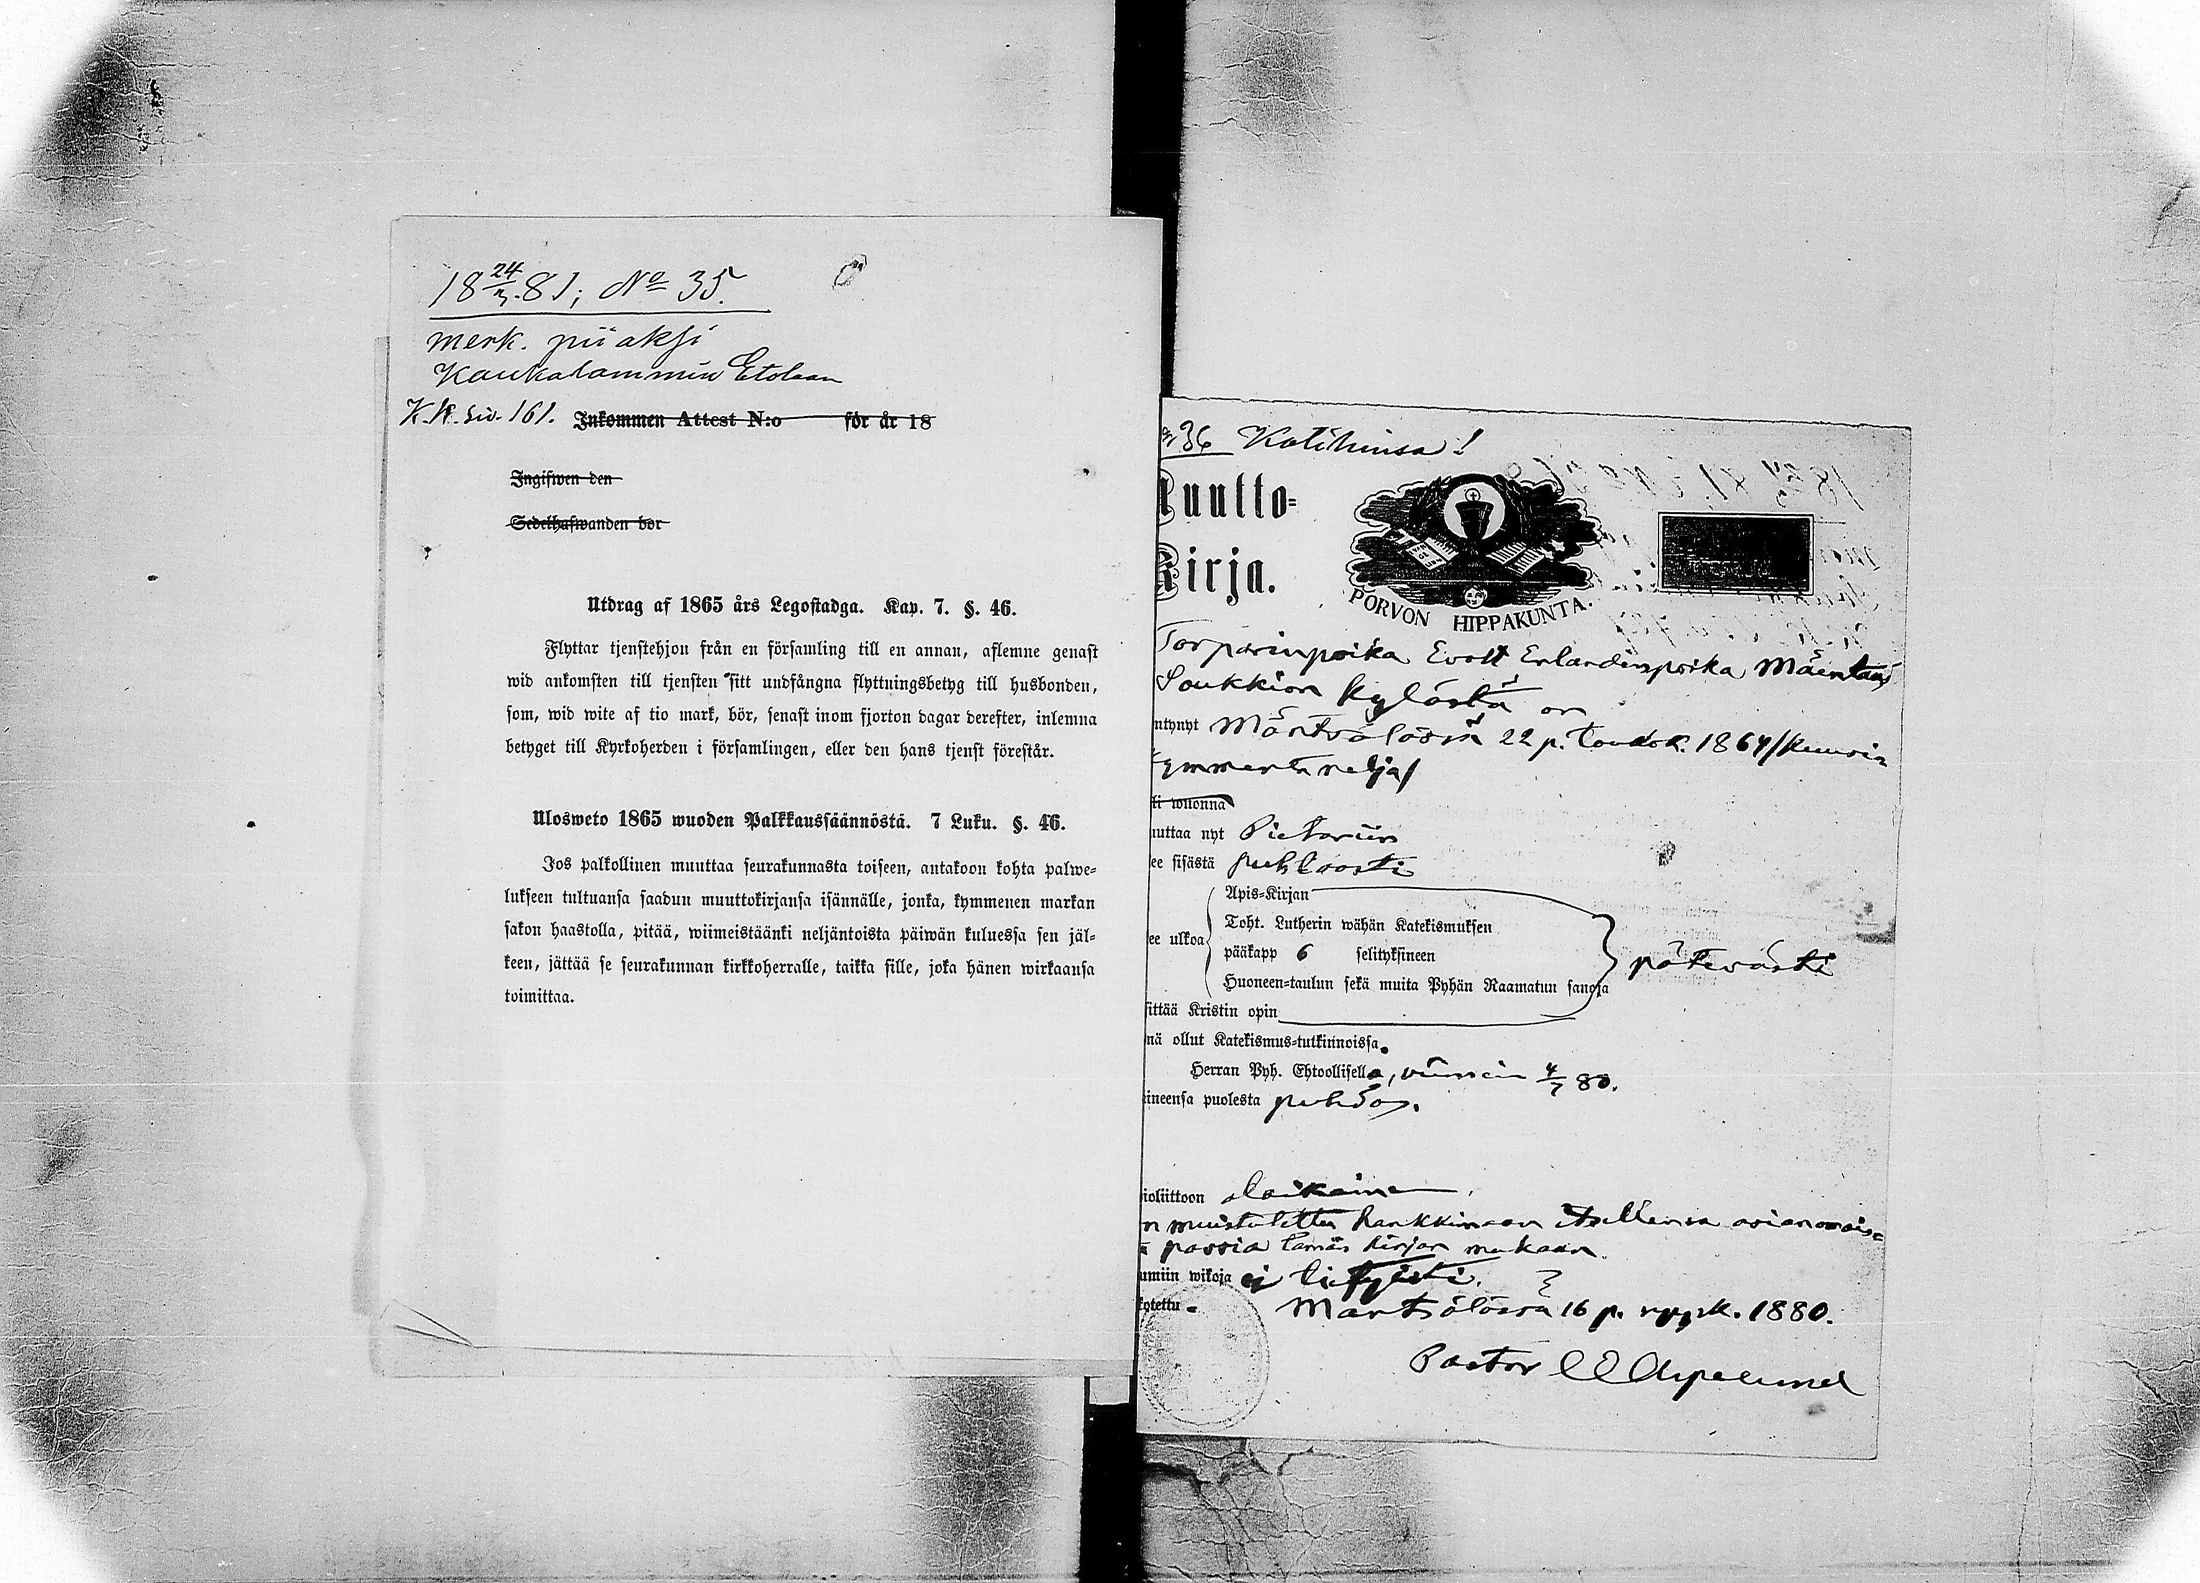 18 24/3 81; No 35.
merk. piiaksi
Kaukalammin Etolaan
K.K. siv. 161. Inkommen Attest N:o för år 18
Ingifwen den
Sedelhafwanden bor
Utdrag af 1865 års Legostadga. Kap. 7. §. 46.
Flyttar tjenstehjon från en församling till en annan, aflemne genast
wid ankomsten till tjensten sitt undfångna flyttningsbetyg till husbonden,
som, wid wite af tio mark, bör, senast inom fjorton dagar derefter, inlemna
betyget till Kyrkoherden i församlingen, eller den hans tjenst förestår.
Ulosweto 1865 wuoden Palkkaussäännöstä. 7 Luku. §. 46.
Jos palkollinen muuttaa seurakunnasta toiseen, antakoon kohta palwe-
lukseen tultuansa saadun muuttokirjansa isännälle, jonka, kymmenen markan
sakon haastolla, pitää, wiimeistäänki neljäntoista päiwän kuluessa sen jäl-
keen, jättää se seurakunnan kirkkoherralle, taikka sille, joka hänen wirkaansa
toimittaa.
36 Kotihinsa!
uutto-
Kirja.
PORVON HIPPAKUNTA.
Torparinpoika Evert Erlandinpoika Mäentaus
Soukkion kylästä on
ntynyt Mäntsälässä 22 p. toudok. 1864/kuusi-
kymmentä neljä/
ti wuonna
uuttaa nyt Pietariin
ee sisästä puhtaasti
Apis-Kirjan
Toht. Lutherin wähän Katekismuksen
ee ulkoa
pääkapp 6 selityksineen
Huoneen-taulun sekä muita Pyhän Raamatun sanoja
pätevästi
sittää Kristin opin
nä ollut Katekismus-tutkinnoissa.
Herran Pyh. Ehtoollisella, viimein 4/7 80.
ineensa puolesta puhdas.
ioliittoon alaikäinen
n muistutettu hankkimaan itsellensä asianomais-
passia tämän kirjan mukaan.
umiin wikoja ej tietylsti.
kotettu - Mäntsälässä 16 p. syysk. 1880.
Pastor